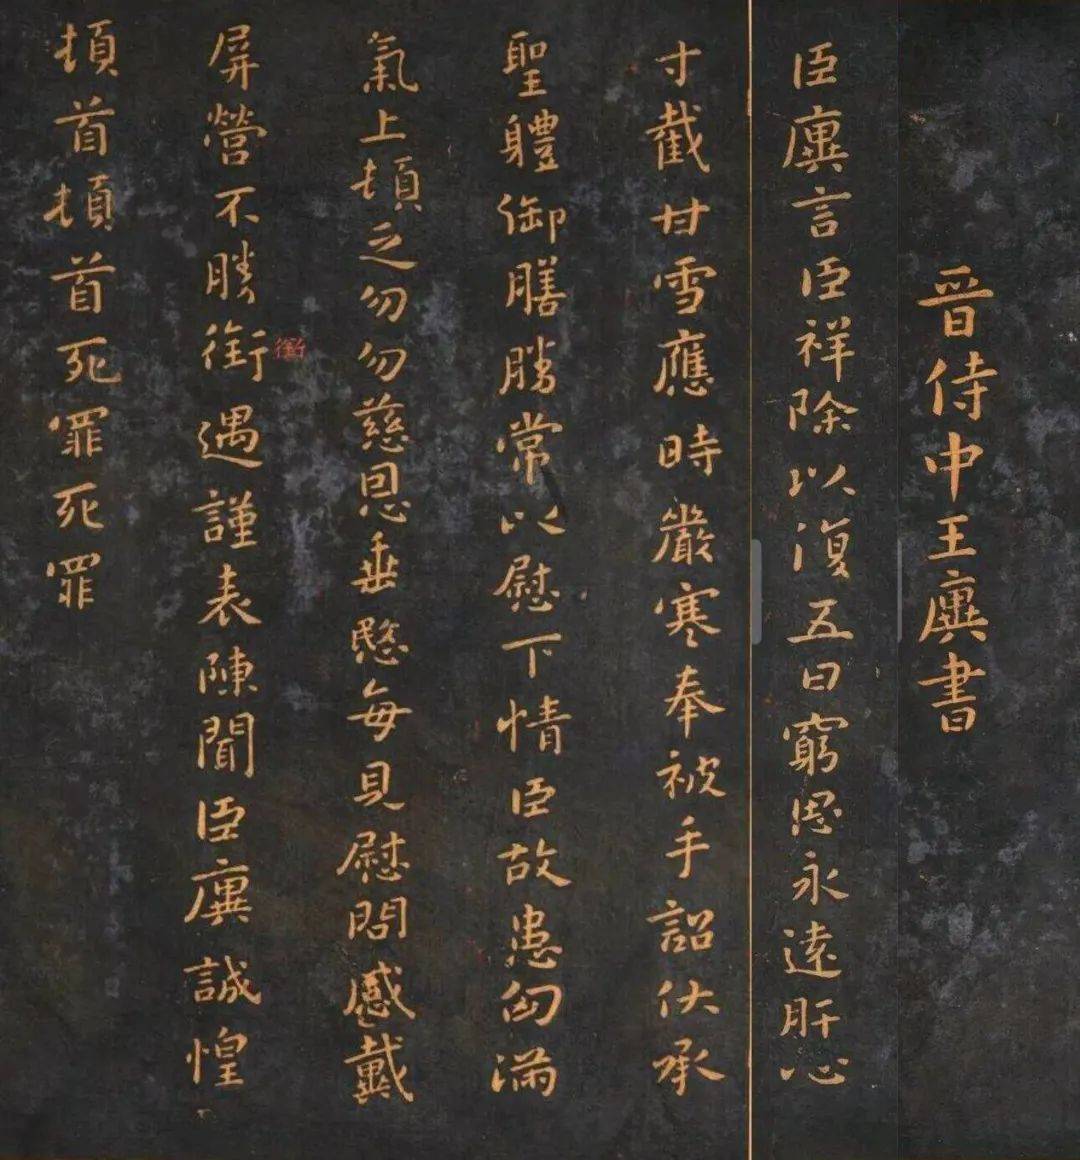 晋侍中王廙書
臣廙言臣祥除以復五日窮思永遠肝心
寸截甘雪應時嚴寒奉被手詔伏承
聖體御膳勝常以慰下情臣故患匈滿
氣上頓乏勿勿慈恩垂愍每見慰問感戴
屏營不勝銜遇謹表陳聞臣廙誠惶
銜
頓首頓首死罪死罪